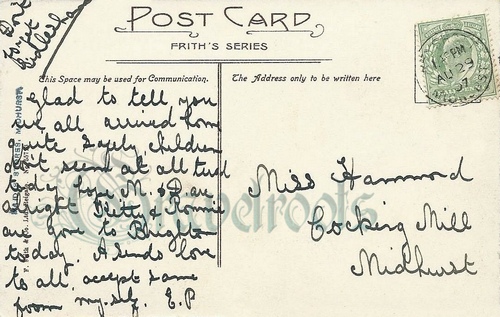 Don't
forget
POST CARD
FRITH'S SERIES
This Space may be used for Communication.
The Address only to be written here
Glad to tell you
we all arrived home
quite safely children
don't seem at all tired
today hope M. & D. are
alright Kitty & Ronnie
are gone to Brighton
today. A sends love
to all, accept same
from myself. E.P
Miss Hammond
Cocking Mill
Midhurst
PM
AU 29
07
MIDHURST